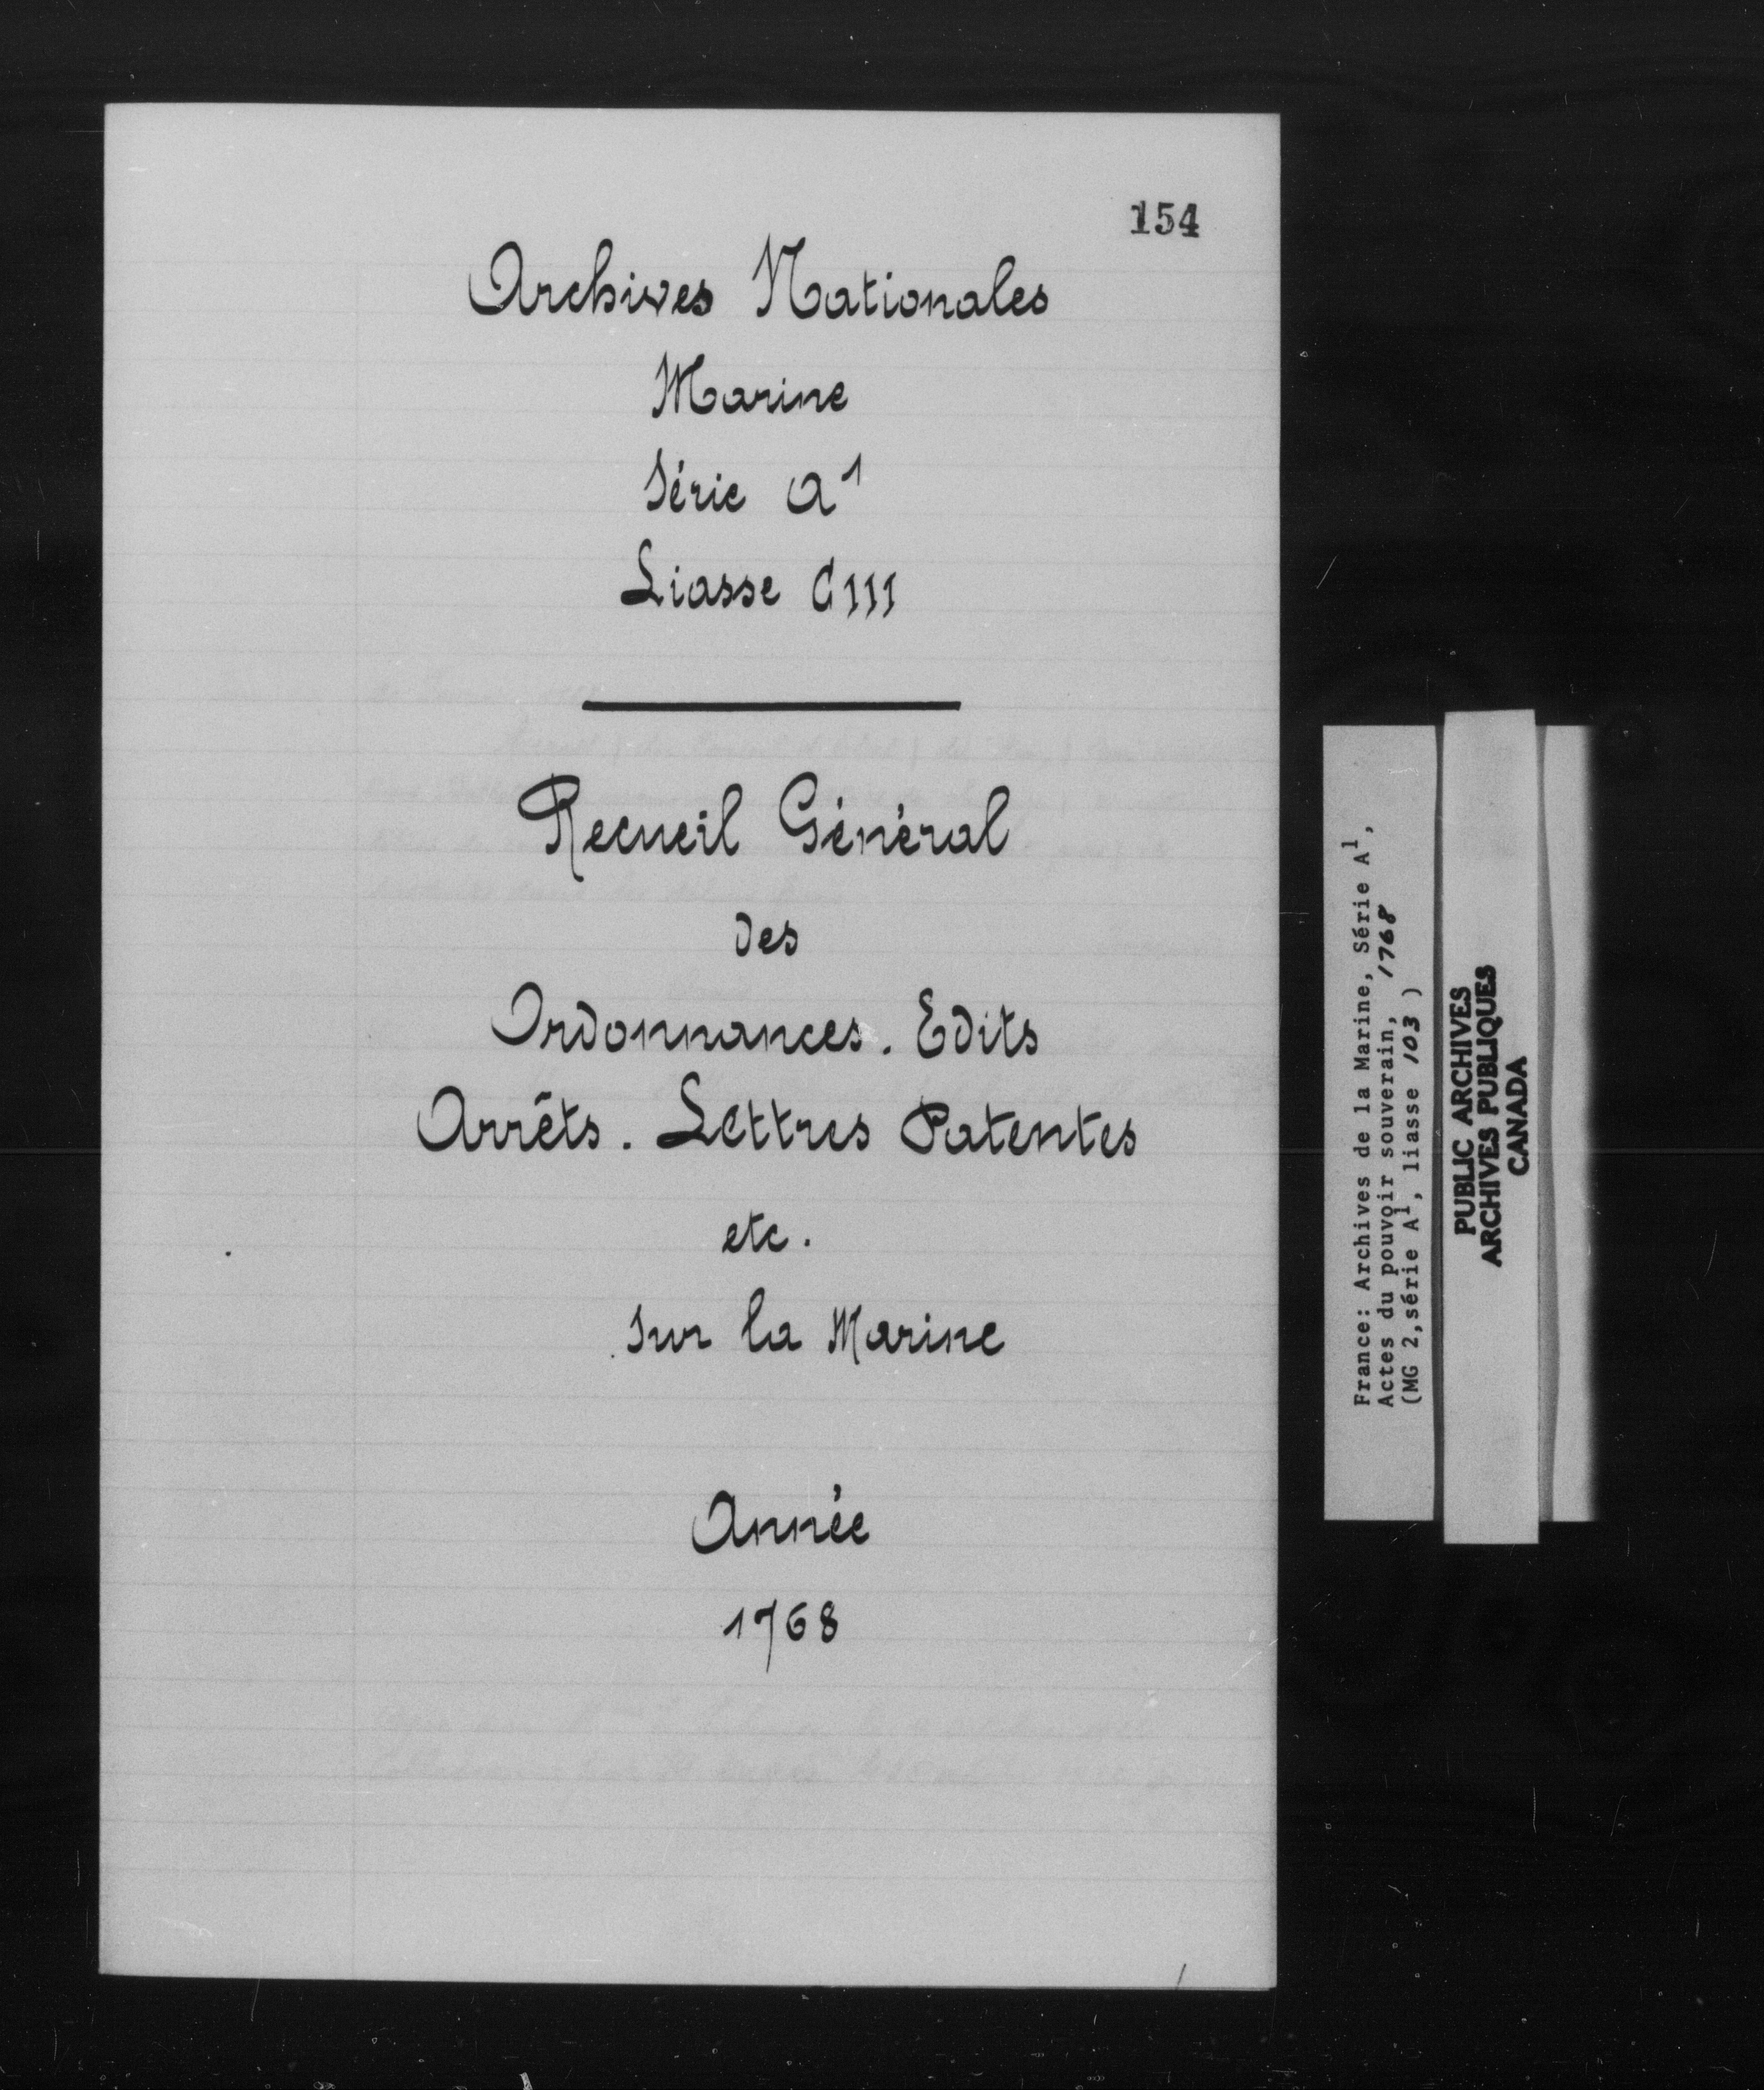 154
Archives Nationales
Marine
Série A1
Liasse CIII
Recueil Général
des
Ordonnances. Edits
Arrêts. Lettres Patentes
etc.
sur la Marine
Année
1768
France: Archives de la Marine, Série A1,
Actes du pouvoir souverain, 1768
(MG 2,série A1, liasse 103 )
PUBLIC ARCHIVES
ARCHIVES PUBLIQUES
CANADA